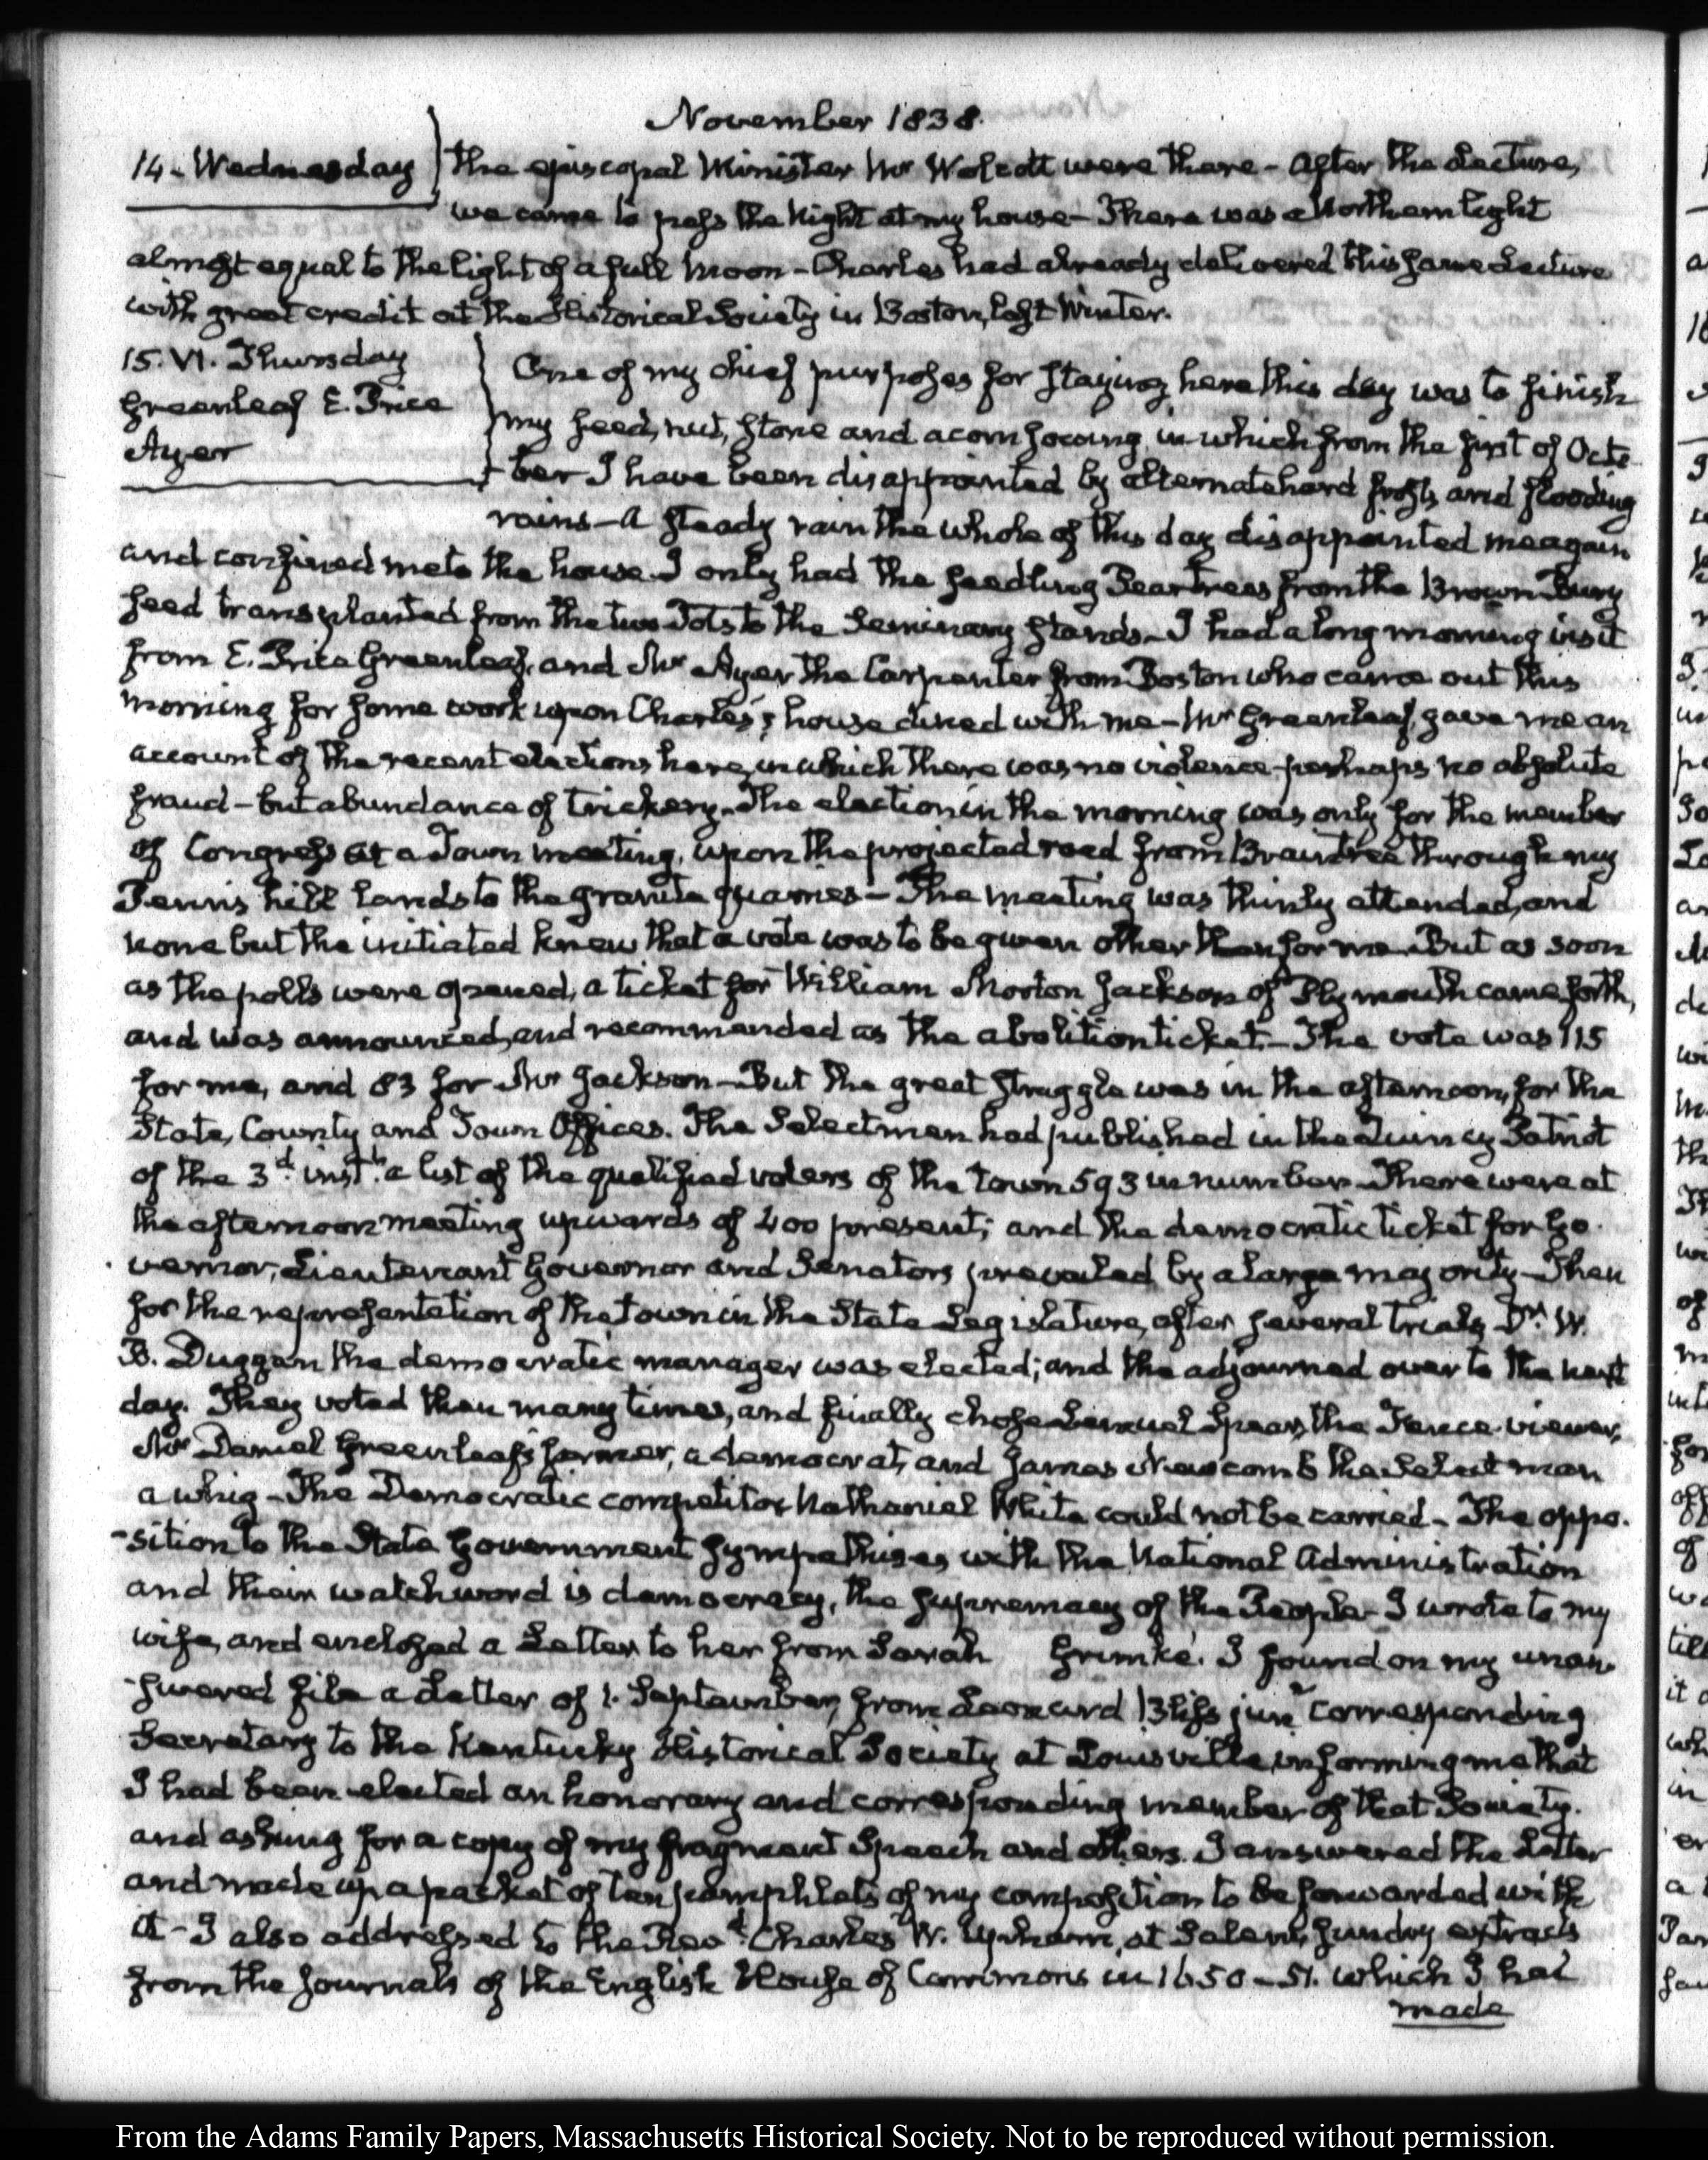 November 1838.
14. Wednesday
the episcopal Minister Mr Wolcott were there - After the Lecture,
we came to pass the Night at my house - There was a Northern light
almost equal to the light of a full Moon - Charles had already delivered this same Lecture
with great credit at the Historical Society in Boston, last Winter.
15. VI. Thursday
Greenleaf E. Price
Ayer
One of my chief purposes for staying here this day was to finish
my seed, nut, stone and acorn sowing, in which from the first of Octo-
ber I have been disappointed by alternate hard frosts and flooding
rains - A steady rain the whole of this day disappointed me again
and confined me to the house. I only had the seedling Pear trees from the Brown Bury
seed transplanted from the two Pots to the Seminary stands - I had a long morning visit
from E. Price Greenleaf, and Mr Ayer the Carpenter from Boston who came out this
morning for some work upon Charles's house dined with me - Mr Greenleaf, gave me an
account of the recent elections here, in which there was no violence - perhaps no absolute
fraud - but abundance of trickery - The election in the morning was only for the member
of Congress at a Town meeting, upon the projected road from Braintree through my
Penn's hill lands to the granite quarries - The meeting was thinly attended, and
none but the initiated knew that a vote was to be given other than for me - But as soon
as the polls were opened, a ticket for William Morton Jackson of Plymouth came forth,
and was announced, and recommended as the abolition ticket - The vote was 115
for me, and 83 for Mr Jackson - But the great struggle was in the afternoon, for the
State, County and Town Offices. The Selectmen had published in the Quincy Patriot
of the 3d. inst. a list of the qualified voters of the town 593 in number - There were at
the afternoon meeting upwards of 400 present; and the democratic ticket for Go-
vernor, Lieutenant Governor and Senators prevailed by a large majority - Then
for the representation of the town in the State Legislature, after several trials Dr. W.
B. Duggan the democratic manager was elected; and the adjourned over to the next
day. They voted then many times, and finally chose Lemuel Spear, the Fence-viewer,
Mr Daniel Greenleaf's farmer, a democrat, and James Newcomb the Selectman
a whig - The Democratic competitor Nathaniel White could not be carried - The oppo-
-sition to the State Government sympathises with the National Administration
and their watchword is democracy, the supremacy of the People - I wrote to my
wife, and enclosed a Letter to her from Sarah Grimké. I found on my unan-
-swered file a Letter of 1. September, from Leonard Bliss junr corresponding
Secretary to the Kentucky Historical Society at Louisville, informing me that
I had been elected an honorary and corresponding member of that Society.
and asking for a copy of my fragment Speech and others. I answered the Letter
and made up a packet of ten pamphlets of my composition to be forwarded with
it - I also addressed to the Revd. Charles W. Upham, at Salem, sundry extracts
from the Journals of the English House of Commons in 1650-51. which I had
made
From the Adams Family Papers, Massachusetts Historical Society. Not to be reproduced without permission.